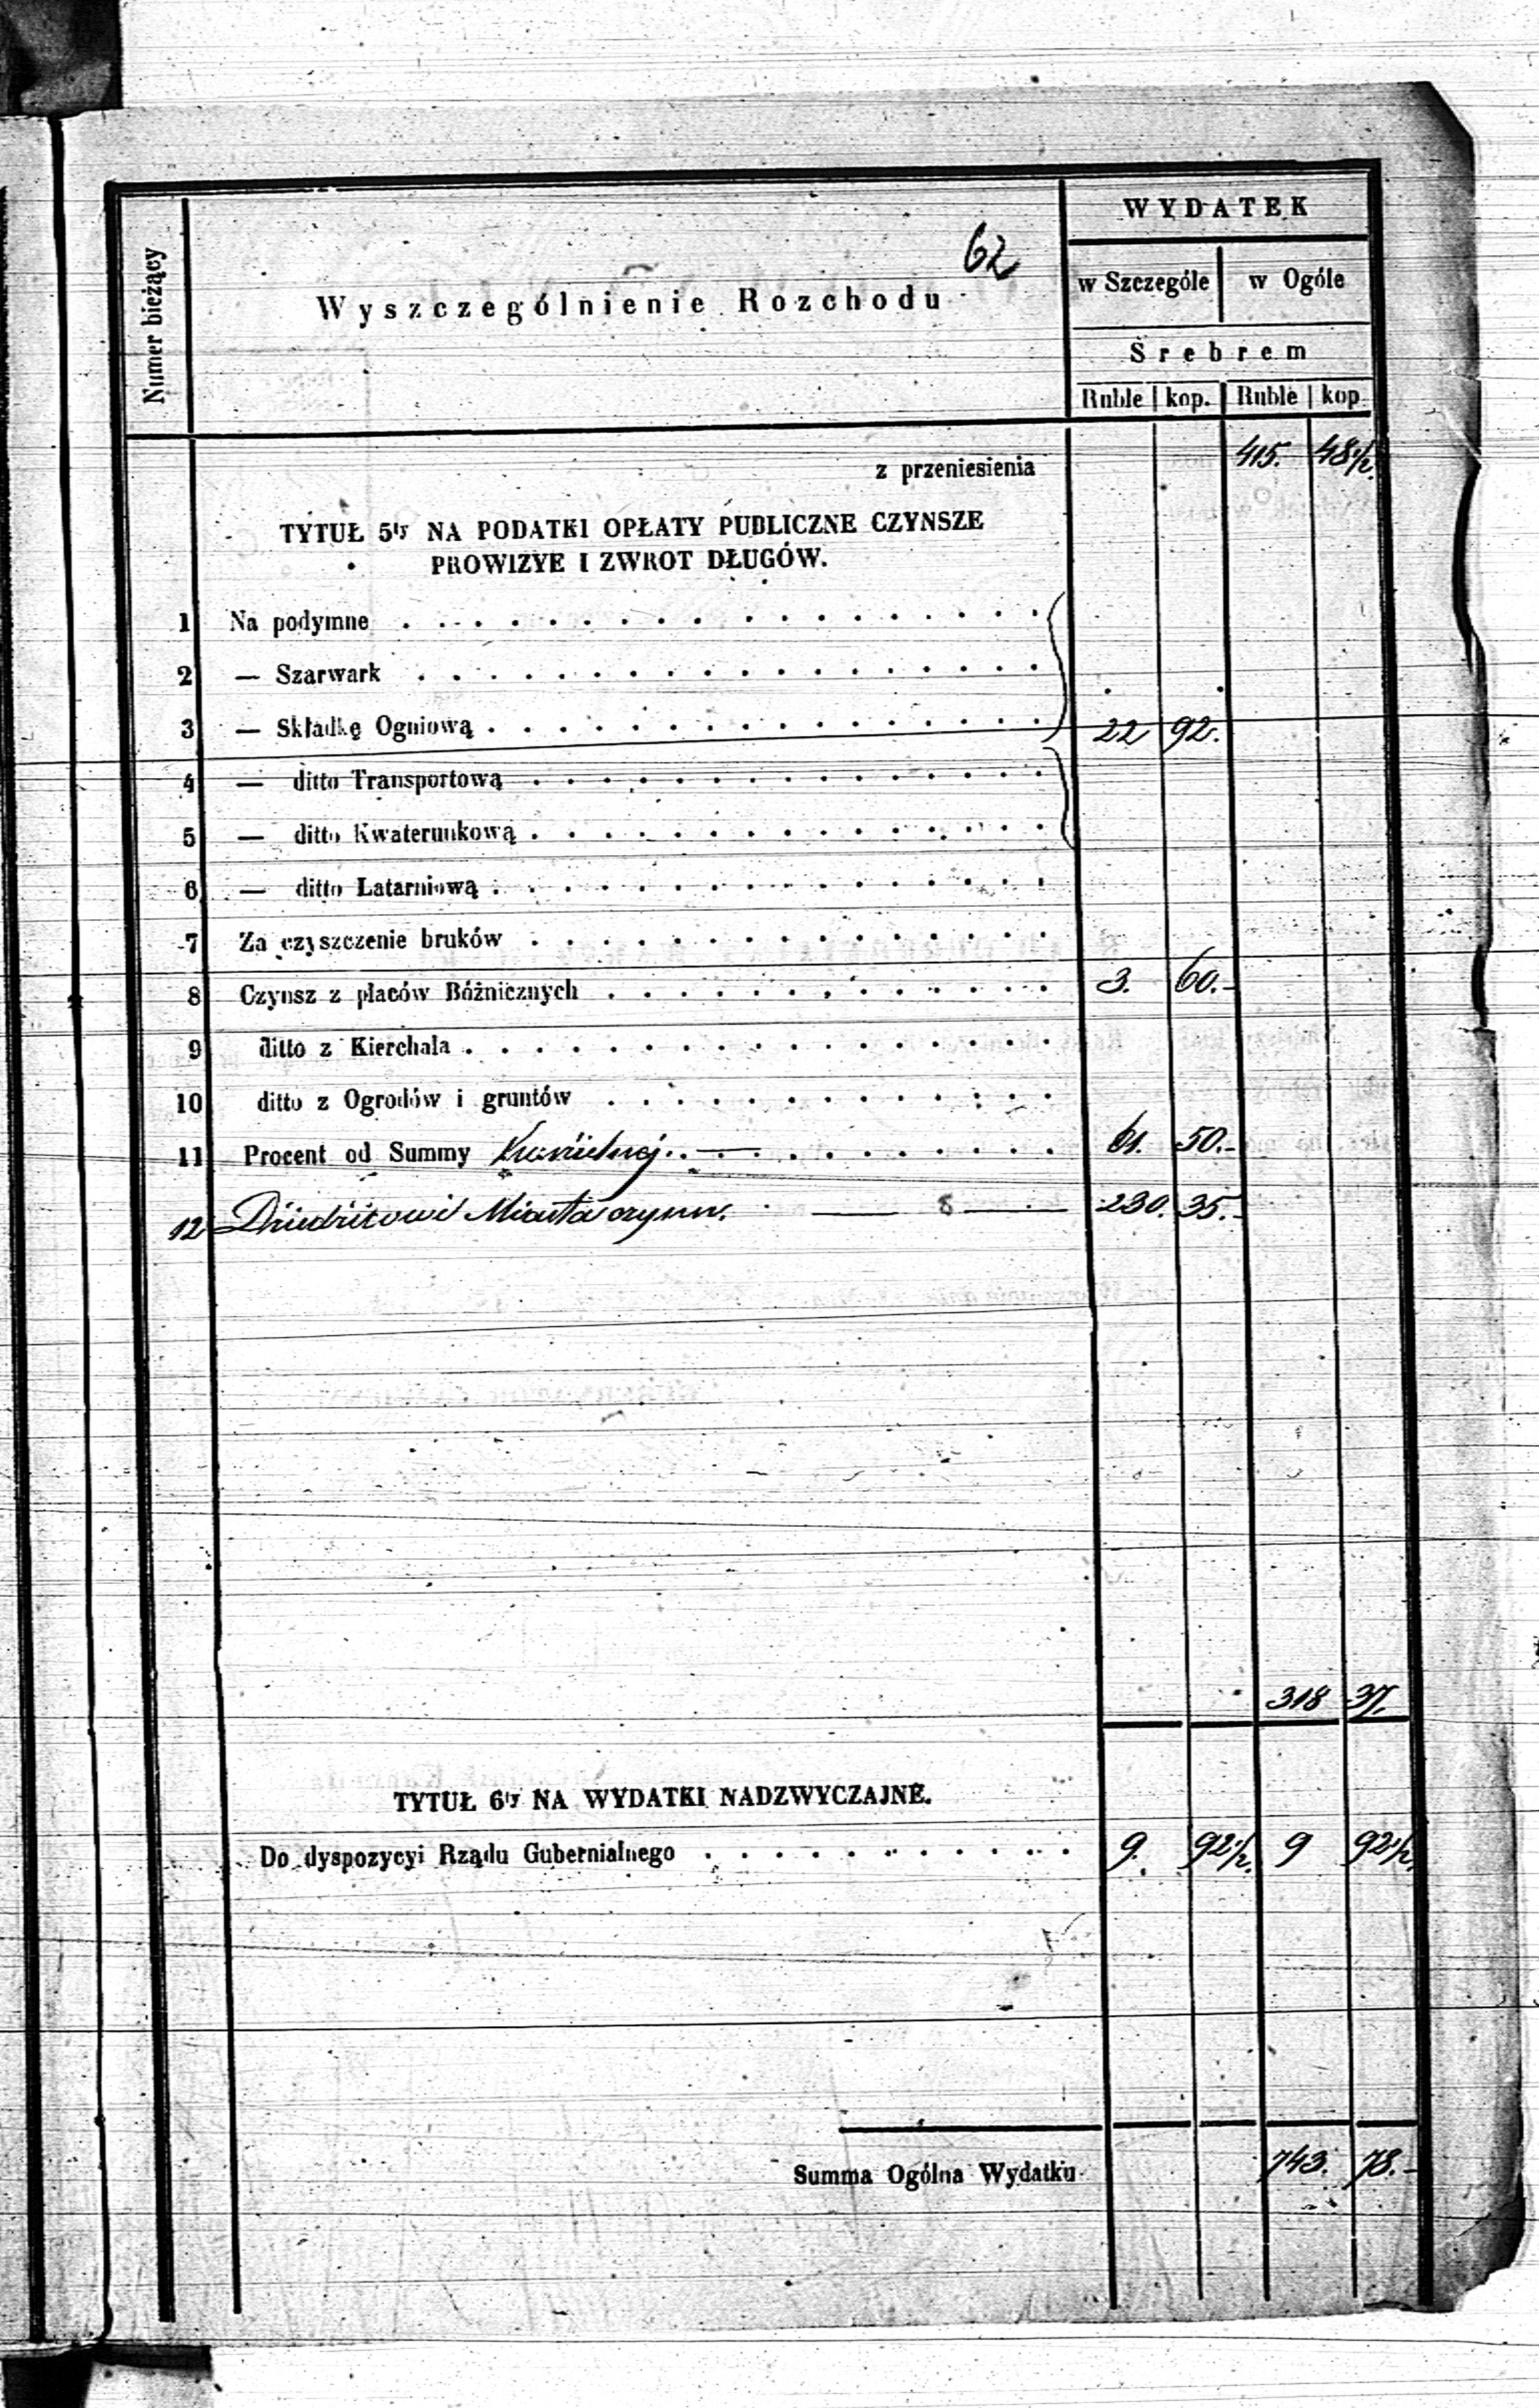 62
WYDATEK
Numer bieżący
Wyszczególnienie Rozchodu
w Szczególe w Ogóle
Srebrem
Ruble kop. Ruble kop.
z przeniesienia 415. 48 1/2.
TYTUŁ 5ty NA PODATKI OPŁATY PUBLICZNE CZYNSZE
PROWIZYE I ZWROT DŁUGÓW.
1 Na podymne
2 — Szarwark
3 — Składkę Ogniową 22 92.
4 — ditto Transportową
5 — ditto Kwaterunkową
6 — ditto Latarniową
7 Za czyszczenie bruków
8 Czynsz z placów Bóżnicznych 3. 60.-
9 ditto z Kierchala
10 ditto z Ogrodów i gruntów
11 Procent od Summy 61. 50.-
12 Dziedzicowi Miasta czynsz. 230. 35.-
318 37.
TYTUŁ 6ty NA WYDATKI NADZWYCZAJNE.
Do dyspozycyi Rządu Gubernialnego 9. 92 1/2. 9 92 1/2.
Summa Ogólna Wydatku 743. 78.-